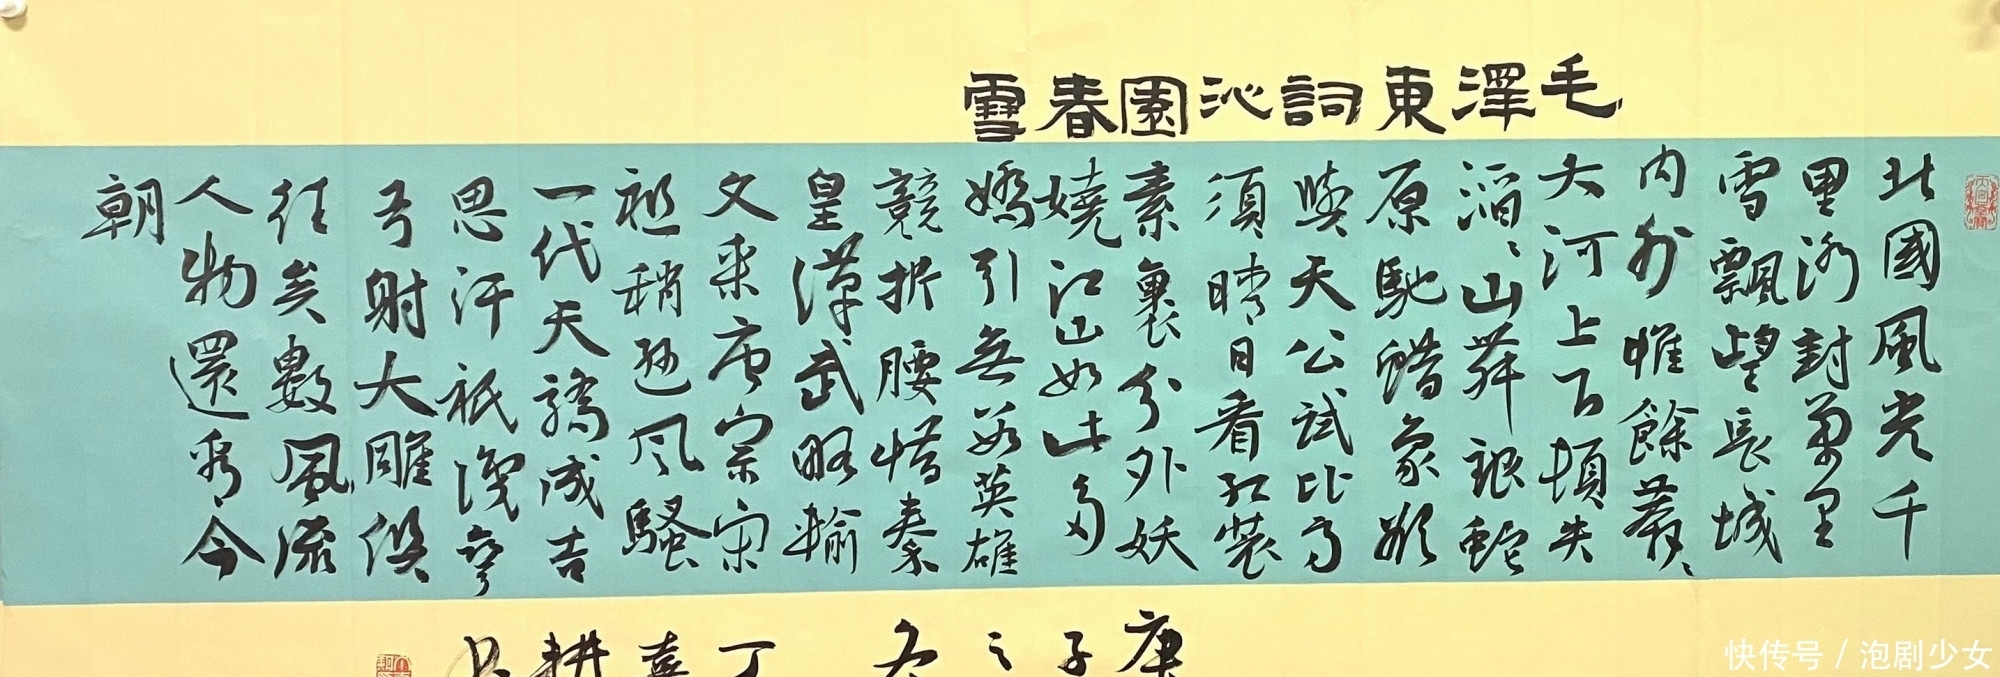 毛澤東詞沁園春雪
北國風光千
里冰封萬里
雪飄望長城
內外惟餘莽〻
大河上下頓失
滔〻山舞銀蛇
原馳蜡象欲
與天公試比高
須晴日看紅裝
素裹分外妖
嬈江山如此多
嬌引無數英雄
競折腰惜秦
皇漢武略輸
文采唐宗宋
祖稍遜風騷
一代天驕成吉
思汗祇識彎
弓射大雕俱
往矣數風流
人物還看今
朝
庚子之冬
丁嘉耕
快传号 / 泡剧少女